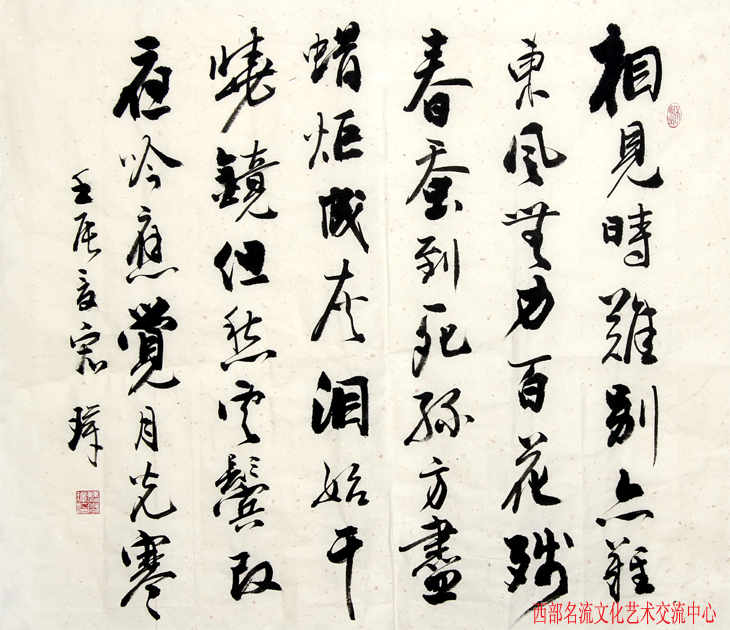 相見時難別亦難
東風無力百花殘
春蚕到死絲方盡
蜡炬成灰泪始干
曉鏡但愁云鬢改
夜吟應覺月光寒
壬辰
西部名流文化艺术交流中心